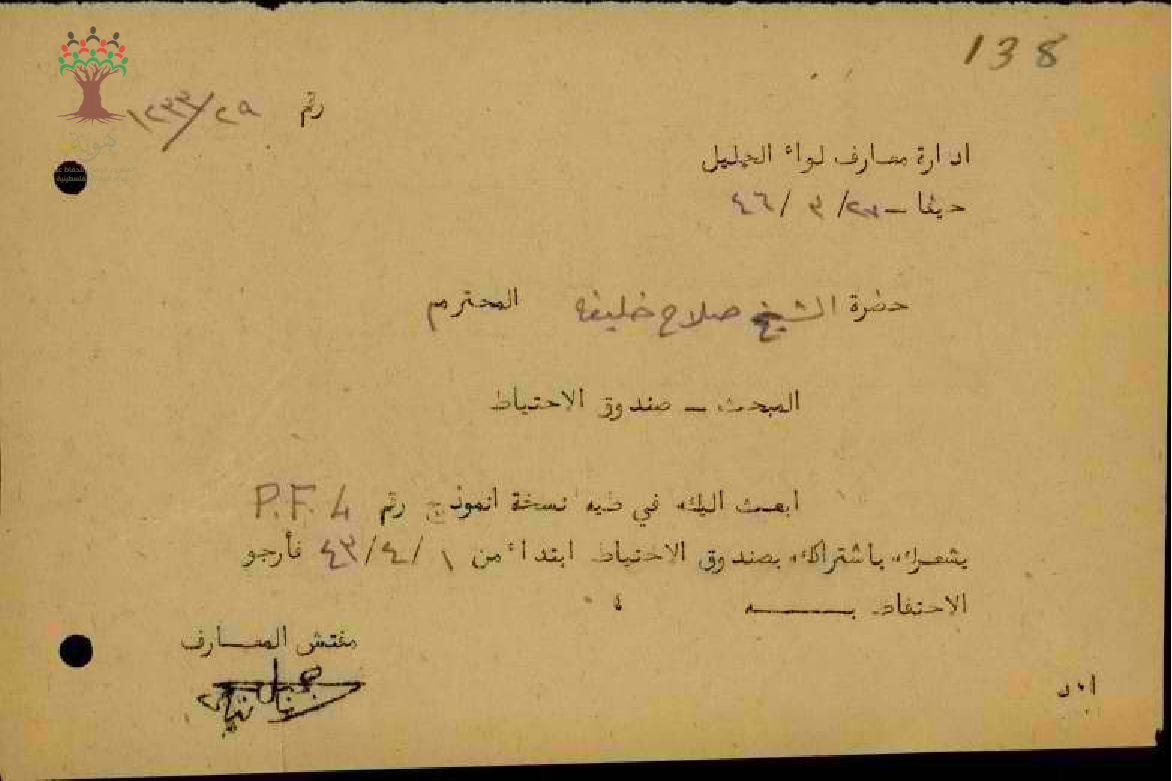 138
رقم ١٢٣٣/٢٩
ادارة معارف لواء الجليل
حيفا - /٣/ ٤٦
حضرة الشيخ صلاح خليفه المحترم
المبحث - صندوق الاحتياط
ابعث اليك في طيه نسخة انموذج رقم P.F. 4
يشعرك باشتراكك بصندوق الاحتياط ابتداء من ١ /٤/ ٤٣ فأرجو
الاحتفاظ بــه ،
مفتش المعارف